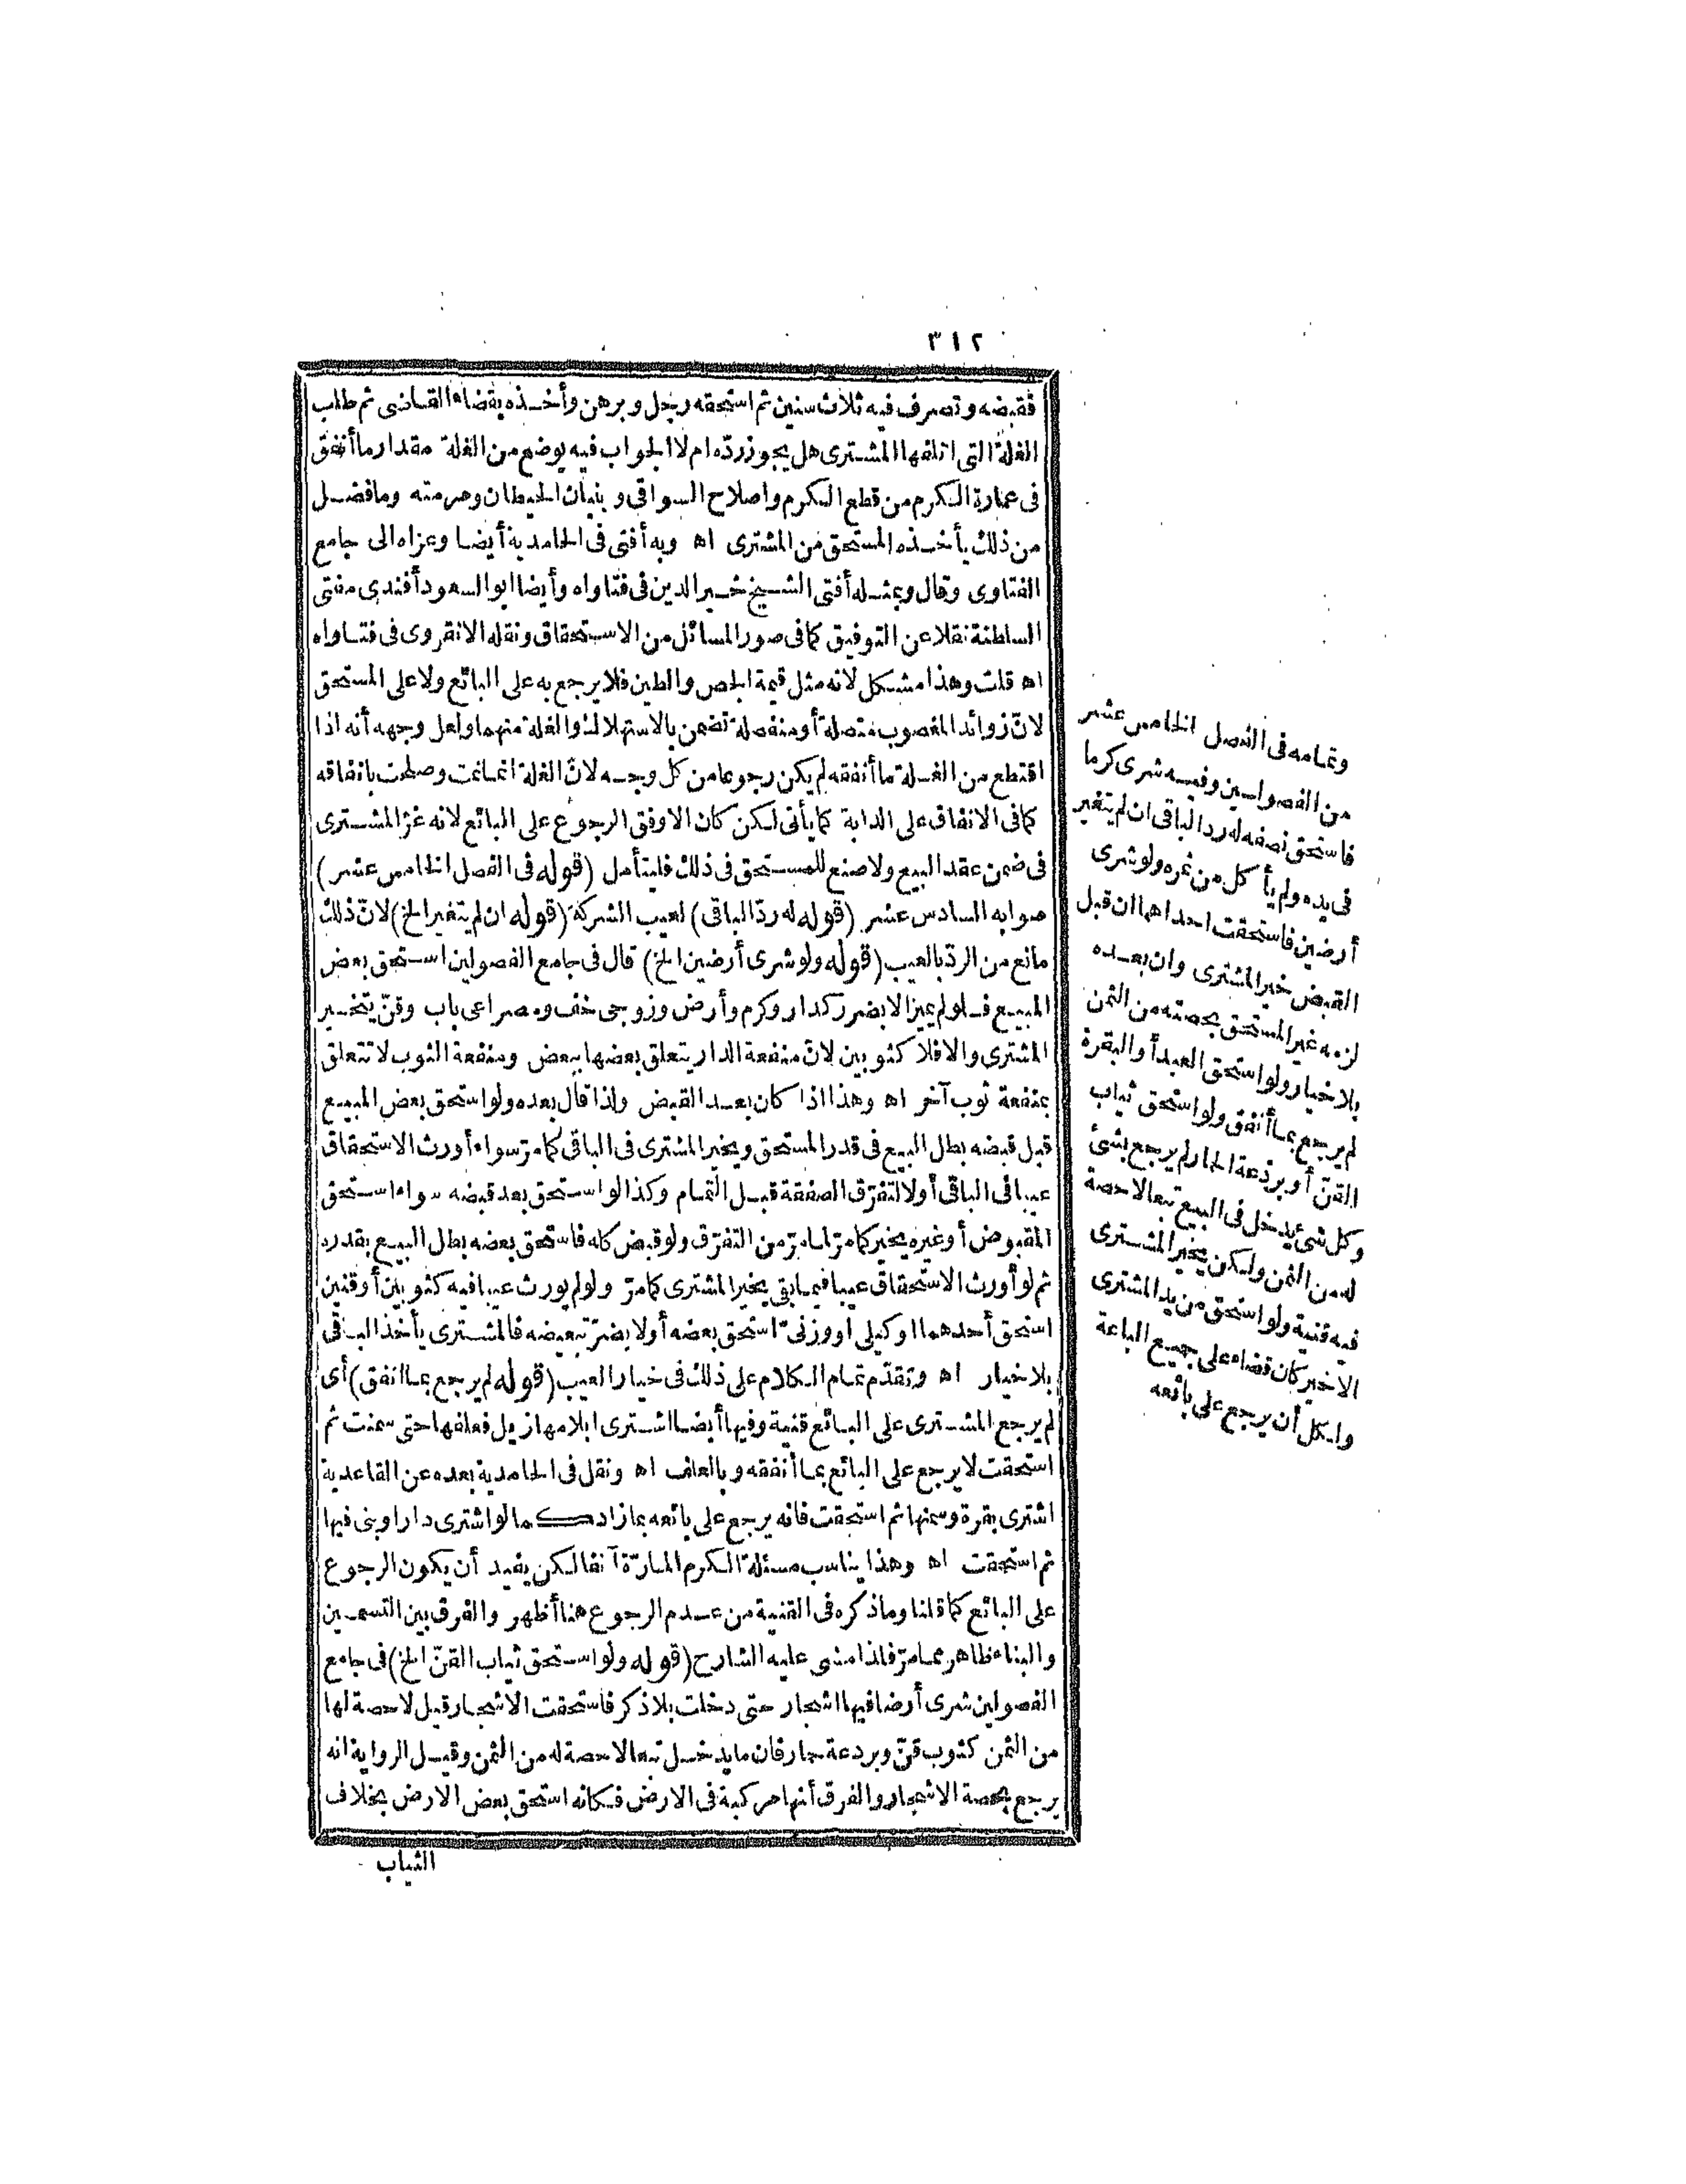 ٣١٢
فقبضه وتصرف فيه ثلاث سنين ثم استحقه رجل وبرهن وأخذه بقضاء القاضى ثم طلب
الغلة التى اتلفها المشترى هل يجوز ردّه ام لا الجواب فيه يوضع من الغلة مقدار ما أنفق
فى عمارة الكرم من قطع الكرم واصلاح السواقى وبنيان الحيطان ومرمته وما فضل
من ذلك يأخذه المستحق من المشترى اه وبه أفتى فى الحامدية أيضا وعزاه الى جامع
الفتاوى وقال وبمثله أفتى الشيخ خير الدين فى فتاواه وأيضا ابو السعود أفندى مفتى
السلطنة نقلا عن التوفيق كما فى صور المسائل من الاستحقاق ونقله الانقروى فى فتاواه
اه قلت وهذا مشكل لانه مثل قيمة الجص والطين فلا يرجع به على البائع ولا على المستحق
لانّ زوائد المغصوب متصلة أو منفصلة تضمن بالاستهلاك والغلة منهما ولعل وجهه أنه اذا
اقتطع من الغلة ما أنفقه لم يكن رجوعا من كل وجه لانّ الغلة انما نمت وصلحت بانفاقه
كما فى الانفاق على الدابة كما يأتى لكن كان الاوفق الرجوع على البائع لانه غرّ المشترى
فى ضمن عقد البيع ولا صنع للمستحق فى ذلك فليتأمل (قوله فى الفصل الخامس عشر)
صوابه السادس عشر (قوله له ردّ الباقى) لعيب الشركة (قوله ان لم يتغير الخ) لانّ ذلك
مانع من الردّ بالعيب (قوله ولو شرى أرضين الخ) قال فى جامع الفصولين استحق بعض
المبيع فلو لم يميز الا بضرر كدار وكرم وأرض وزوجى خف ومصراعى باب وقنّ يتخير
المشترى والا فلا كثوبين لانّ منفعة الدار يتعلق بعضها ببعض ومنفعة الثوب لا تتعلق
بمنفعة ثوب آخر اه وهذا اذا كان بعد القبض ولذا قال بعده ولو استحق بعض المبيع
قبل قبضه بطل البيع فى قدر المستحق ويخير المشترى فى الباقى كما مرّ سواء أورث الاستحقاق
عيبا فى الباقى أو لا لتفرّق الصفقة قبل التمام وكذا لو استحق بعد قبضه سواء استحق
المقبوض أو غيره يخير كما مرّ لما مرّ من التفرّق ولو قبض كله فاستحق بعضه بطل البيع بقدره
ثم لو أورث الاستحقاق عيبا فيما بقى يخير المشترى كما مرّ ولو لم يورث عيبا فيه كثوبين أو قنين
استحق أحدهما او كيلى او وزنىّ استحق بعضه أو لا يضرّ تبعيضه فالمشترى يأخذ الباقى
بلا خيار اه وتقدّم تمام الكلام على ذلك فى خيار العيب (قوله لم يرجع بما انفق) أى
لم يرجع المشترى على البائع قنية وفيها أيضا اشترى ابلا مهازيل فعلفها حتى سمنت ثم
استحقت لا يرجع على البائع بما أنفقه وبالعلف اه ونقل فى الحامدية بعده عن القاعدية
اشترى بقرة وسمنها ثم استحقت فانه يرجع على بائعه بما زاد كما لو اشترى دارا وبنى فيها
ثم استحقت اه وهذا يناسب مسئلة الكرم المارّة آنفا لكن يفيد أن يكون الرجوع
على البائع كما قلنا وما ذكره فى القنية من عدم الرجوع هنا أظهر والفرق بين التسمين
والبناء ظاهر مما مرّ فلذا مشى عليه الشارح (قوله ولو استحق ثياب القنّ الخ) فى جامع
الفصولين شرى أرضا فيها اشجار حتى دخلت بلا ذكر فاستحقت الاشجار قيل لا حصة لها
من الثمن كثوب قنّ وبردعة حمار فان ما يدخل تبعا لا حصة له من الثمن وقيل الرواية انه
يرجع بحصة الاشجار والفرق أنها مركبة فى الارض فكانه استحق بعض الارض بخلاف
الثياب
وتمامه فى الفصل الخامس عشر
من الفصولين وفيه شرى كرما
فاستحق نصفه له رد الباقى ان لم يتغير
فى يده ولم يأكل من ثمره ولو شرى
أرضين فاستحقت احداهما ان قبل
القبض خير المشترى وان بعده
لزمه غير المستحق بحصته من الثمن
بلا خيار ولو استحق العبد أو البقرة
لم يرجع بما أنفق ولو استحق ثياب
القنّ أو برذعة الحمار لم يرجع بشئ
وكل شئ يدخل فى البيع تبعا لا حصة
له من الثمن ولكن يخير المشترى
فيه قنية ولو استحق من يد المشترى
الاخير كان قضاء على جميع الباعة
ولكل أن يرجع على بائعه